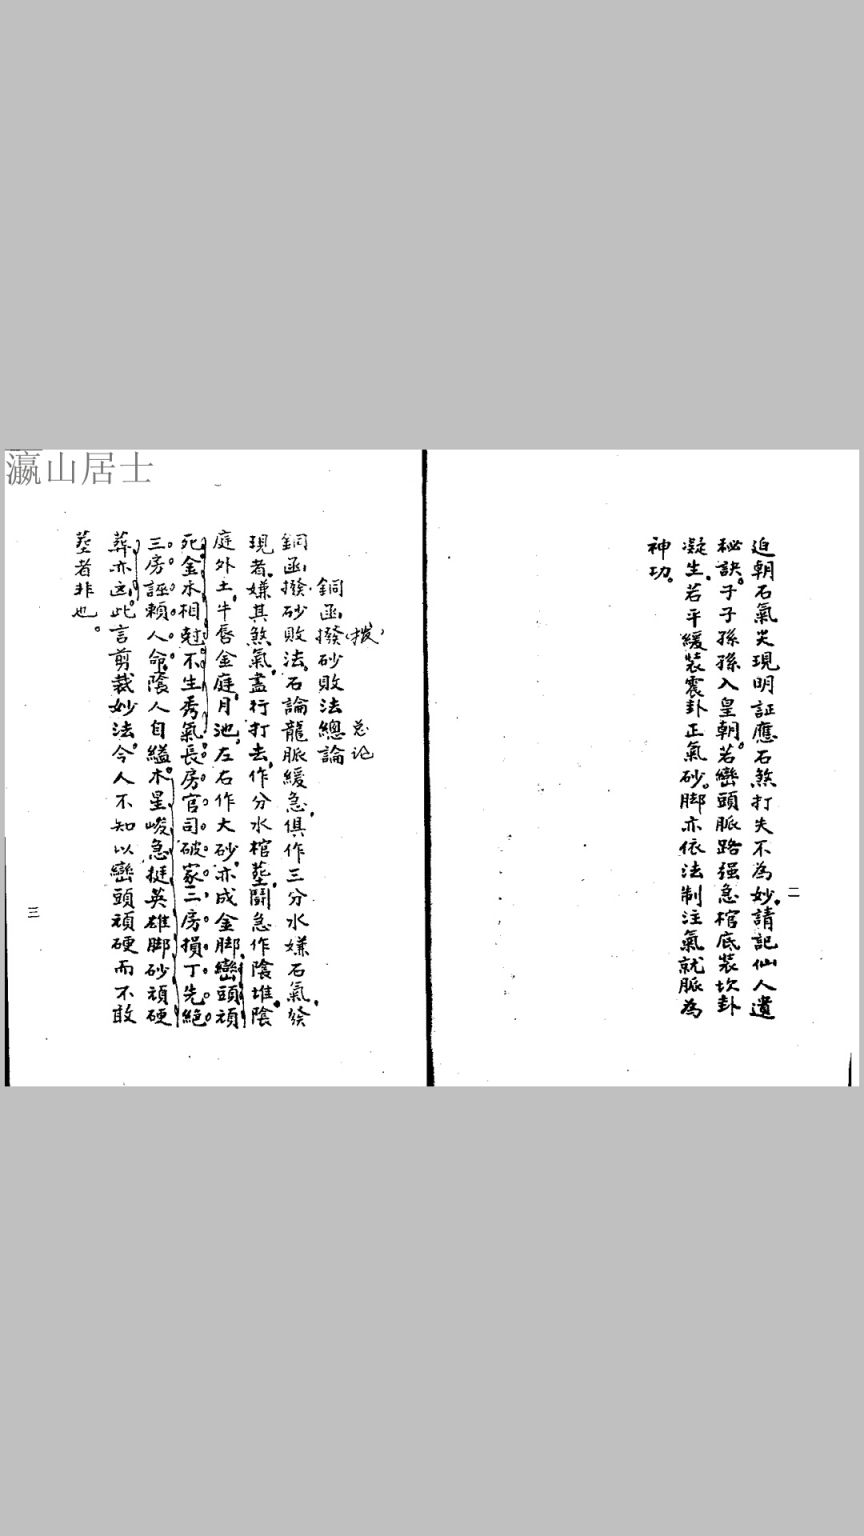 瀛山居士
迫朝石氣尖現明証應石煞打失不為妙。請記仙人遺
秘訣。子子孫孫入皇朝。若巒頭脈路强急棺底裝坎卦
凝生。若平緩裝震卦正氣砂。脚亦依法制注氣就脈為
神功。
二
(拨) 总论
銅函撥砂敗法總論
銅函撥砂敗法。石論龍脈緩急。俱作三分水嫌石氣。發
現者。嫌其煞氣。盡行打去。作分水棺塟。鬪急作陰堆。陰
庭外土。牛唇金庭。月池。左右作大砂。亦成金脚。巒頭頑
死。金木相尅。不生秀氣。長房官司破家。三房損丁先絕
三房誣賴人命。陰人自縊。木星峻急。挺英雄脚砂頑硬
葬亦凶。此言剪裁妙法。今人不知以巒頭頑硬而不敢
塟者非也。
三